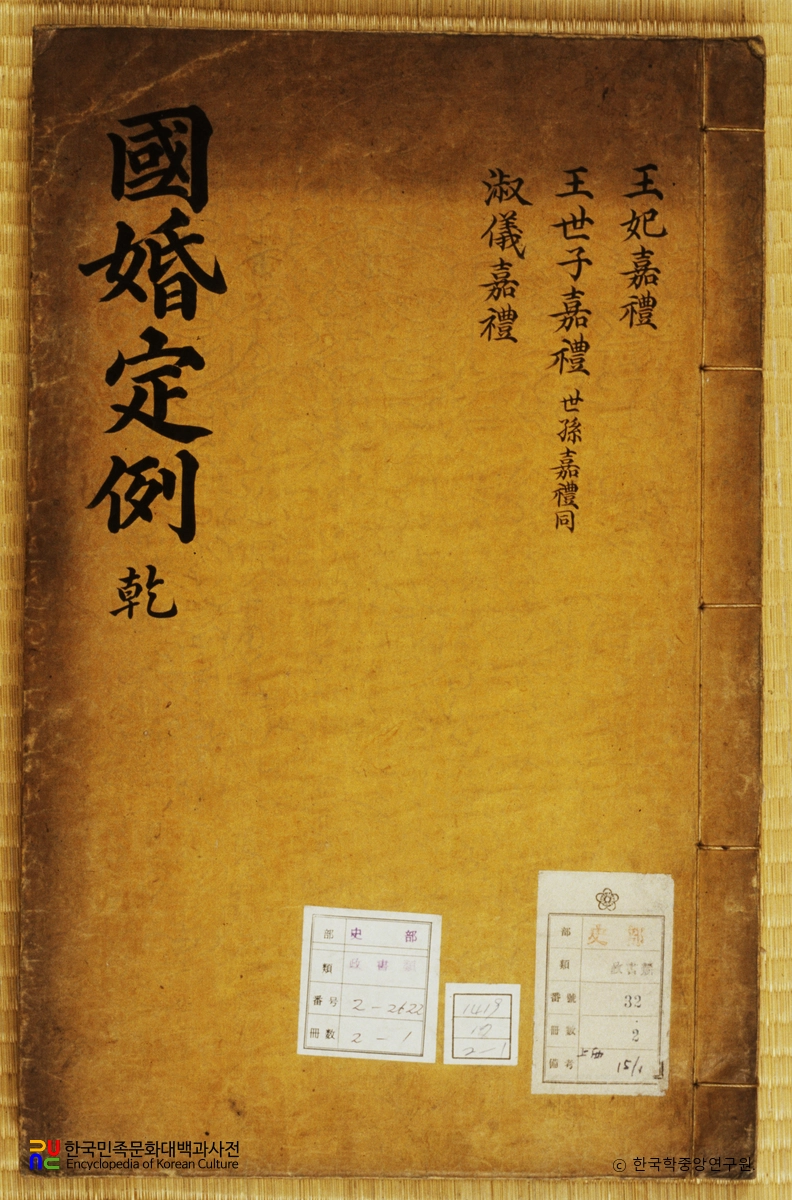 王妃嘉禮
王世子嘉禮 世孫嘉禮同
淑儀嘉禮
國婚定例 乾
部 史 部
類 政書類
番号 2-2622
冊数 2-1
1419
10
2-1
部 史部
類 政書類
番號 32
冊數 2
備考 15/1
한국민족문화대백과사전
Encyclopedia of Korean Culture
© 한국학중앙연구원